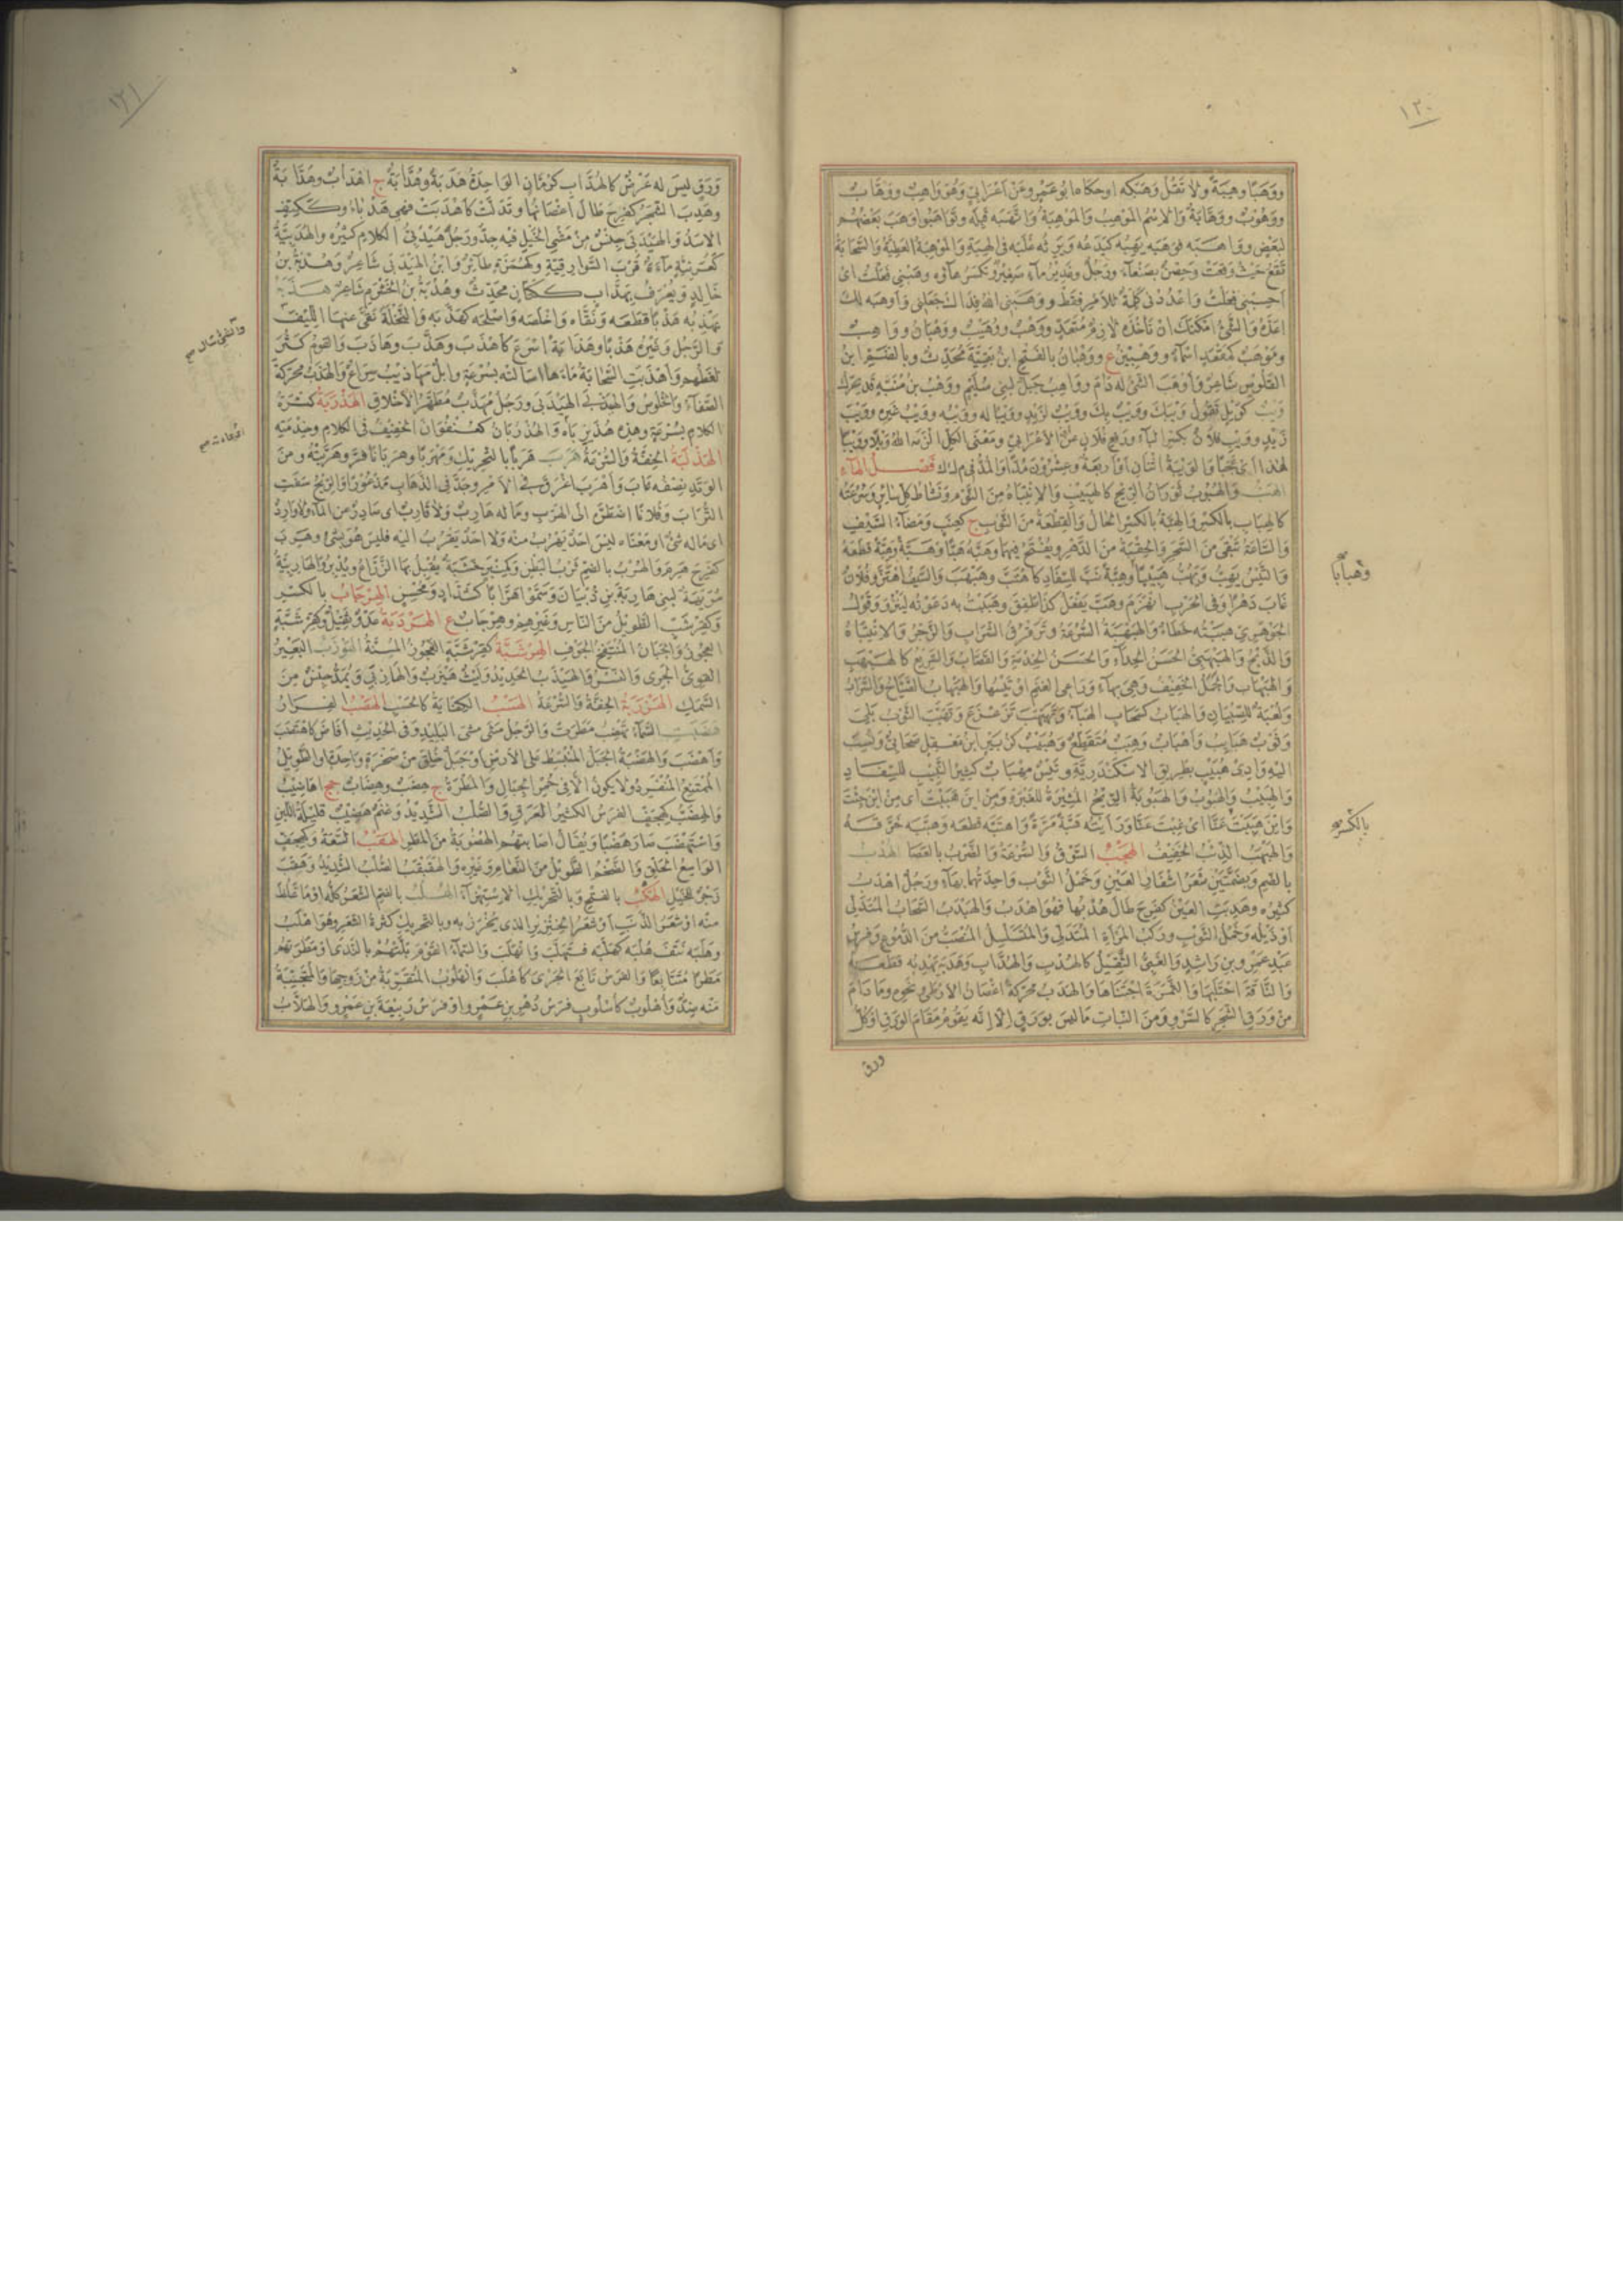 ١٢٠
ووهبا وهبة ولا تقل وهبكه او حكاه ابو عمرو عن اعرابي وهو واهب ووهاب
ووهوب ووهابة والاسم الموهب والموهبة واتهبه قبله وتواهبوا وهب بعضهم
لبعض وواهبه فوهبه يهبه كيدعه ويرثه غلبه في الهبة والموهبة العطية والسحابة
تقع حيث وقعت وحصن بصنعاء ورجل وغدير ماء صغير وتكسر هاؤه وهبني فعلت اى
احسبني فعلت واعددني كلمة للامر فقط ووهبني الله فداك جعلني واوهبه له
اعده والشئ امكنك ان تاخذه لازم متعد ووهب ووهيب ووهبان وواهب
وموهب كمقعد اسماء ووهبين ع ووهبان بالفتح ابن بقية محدث وبالضم ابن
القلوص شاعر واوهب الشئ له دام وواهب جبل لبني سليم ووهب بن منبه قد يحرك
ويب كويل تقول ويبك وويب بك وويب لزيد وويبا له وويب له وويبه وويب غيره وويب
زيد وويب فلان بكسر الباء ورفع فلان عن ابن الاعرابي ومعنى الكل الزمه الله ويلا وويبا
لهذا اى عجبا والويبة اثنان او اربعة وعشرون مدا والمد في م ك ك فصل الهاء
الهب والهبوب ثوران الريح كالهبيب والانتباه من النوم ونشاط كل سائر وسرعته
كالهباب بالكسر والهبة بالكسر الحال والقطعة من الثوب ج كعنب ومضاء السيف
والساعة تبقى من السحر والحقبة من الدهر ويفتح فيهما وهبه هبا وهبة وهبة قطعه
والتيس يهب ويهب هبيبا وهبة نب للسفاد كاهتب وهبهب والسيف اهتز وفلان
غاب دهرا وفي الحرب انهزم وهب يفعل كذا طفق وهببت به دعوته لينزو وقول
الجوهري هببته خطأ والهبهبة السرعة وترقرق السراب والزجر والانتباه
والذبح والهبهبي الحسن الحداء والحسن الخدمة والقصاب والسريع كالهبهب
والهبهاب والجمل الخفيف وهي بهاء وراعي الغنم او تيسها والهبهاب الصياح والسراب
ولعبة للصبيان والهباب كسحاب الهباء وتهبهب تزعزع وتهبب الثوب بلى
وثوب هبايب واهباب وهبب متقطع وهبيب كزبير ابن مغفل صحابي ونسب
اليه وادى هبيب بطريق الاسكندرية وتيس مهباب كثير النبيب للسفاد
والهبيب والهبوب والهبوبة الريح المثيرة للغبرة ومن اين هببت اى من اين جئت
واين هببت عنا اى غبت عنا ورايته هبة مرة واهتبه قطعه وهببه خرقه
والهبهب الذئب الخفيف الهجب السوق والسرعة والضرب بالعصا الهدب
بالضم وبضمتين شعر اشفار العين وخمل الثوب واحدتهما بهاء ورجل اهدب
كثيره وهدبت العين كفرح طال هدبها فهو اهدب والهيدب السحاب المتدلى
او ذيله وخمل الثوب وركب المراة المتدلى والمتسلسل المنصب من الدموع وفرس
عبد عمرو بن راشد والعيي الثقيل كالهدب والهداب وهدبه يهدبه قطعه
والناقة احتلبها والثمرة اجتناها والهدب محركة اغصان الارطى ونحوه وما دام
من ورق الشجر كالسرو ومن النبات ما ليس بورق الا انه يقوم مقام الورق او كل
ورق
وهبابا
بالكسر صح
١٢١
ورق ليس له عرض كالهداب كرمان الواحدة هدبة وهدابة ج اهداب وهدابة
وهدب الشجر كفرح طال اغصانها وتدلت كاهدبت فهي هدباء وككتف
الاسد والهيدبى جنس من مشى الخيل فيه جد ورجل هيدبي الكلام كثيره والهدبية
كعربية ماءة قرب السوارقية وكهمزة طائر وابن الهيدبى شاعر وهدبة بن
خالد ويعرف بهداب ككتان محدث وهدبة بن الخشرم شاعر هذبه
يهذبه هذبا قطعه ونقاه واخلصه واصلحه كهذبه والنخلة نقى عنها الليف
والرجل وغيره هذبا وهذابة اسرع كاهذب وهذب وهاذب والقوم كثر
لغطهم واهذبت السحابة ماءها اسالته بسرعة وابل مهاذيب سراع والهذب محركة
الصفاء والخلوص والهيذبى الهيدبى ورجل مهذب مطهر الاخلاق الهذربة كثرة
الكلام بسرعة وهذه هذيرباه والهذربان كعنفوان الخفيف في الكلام وخدمته
الهذلبة الخفة والسرعة هرب هربا بالتحريك ومهربا وهربانا فر وهربته ومن
الوتد نصفه غاب واهرب اغرق في الامر وجد في الذهاب مذعورا والريح سفت
التراب وفلانا اضطره الى الهرب وما له هارب ولا قارب اى صادر عن الماء ولا وارد
اى ما له شئ او معناه ليس احد يهرب منه ولا احد يقرب اليه فليس هو بشئ وهرب
كفرح هرم والهرب بالضم ثرب البطن وكمنبر خشبة يقبل بها الزراع ويدبر والهاربية
مويهة لبني هاربة بن ذبيان وسموا هرابا كشداد ومحسن الهرجاب بالكسر
وكقرشب الطويل من الناس وغيرهم وهرجاب ع الهردبة عدو ثقيل وكقرشبة
العجوز والجبان المنتفخ الجوف الهرشبة كقرشبة العجوز المسنة الهوزب البعير
القوى الجرى والنسر والهيزب الحديد وليث هيزب والهازبى ويمد جنس من
السمك الهزربة الخفة والسرعة الهسب الكفاية كالحسب الهضب الفرار
هضبت السماء تهضب مطرت والرجل مشى مشى البليد وفي الحديث افاض كاهتضب
واهضب والهضبة الجبل المنبسط على الارض او جبل خلق من صخرة واحدة او الطويل
الممتنع المنفرد ولا يكون الا في حمر الجبال والمطرة ج هضب وهضاب جج اهاضيب
والهضب كهجف الفرس الكثير العرق والصلب الشديد وغنم هضيب قليلة اللبن
واستهضب صار هضبا ويقال اصابتهم الهضوبة من المطر الهقب السعة وكهجف
الواسع الحلق والضخم الطويل من النعام وغيره والهقبقب الصلب الشديد وهقب
زجر للخيل الهكب بالفتح وبالتحريك الاستهزاء الهلب بالضم الشعر كله او ما غلظ
منه او شعر الذنب او شعر الخنزير الذى يخرز به وبالتحريك كثرة الشعر وهو اهلب
وهلبه نتف هلبه كهلبه فتهلب وانهلب والسماء القوم بلتهم بالندى او مطرتهم
مطرا متتابعا والفرس تابع الجرى كاهلب والهلوب المتقربة من زوجها والمتجنبة
منه ضد واهلوب كاسلوب فرس دهر بن عمرو او فرس ربيعة بن عمرو والهلاب
والشئ سال صح